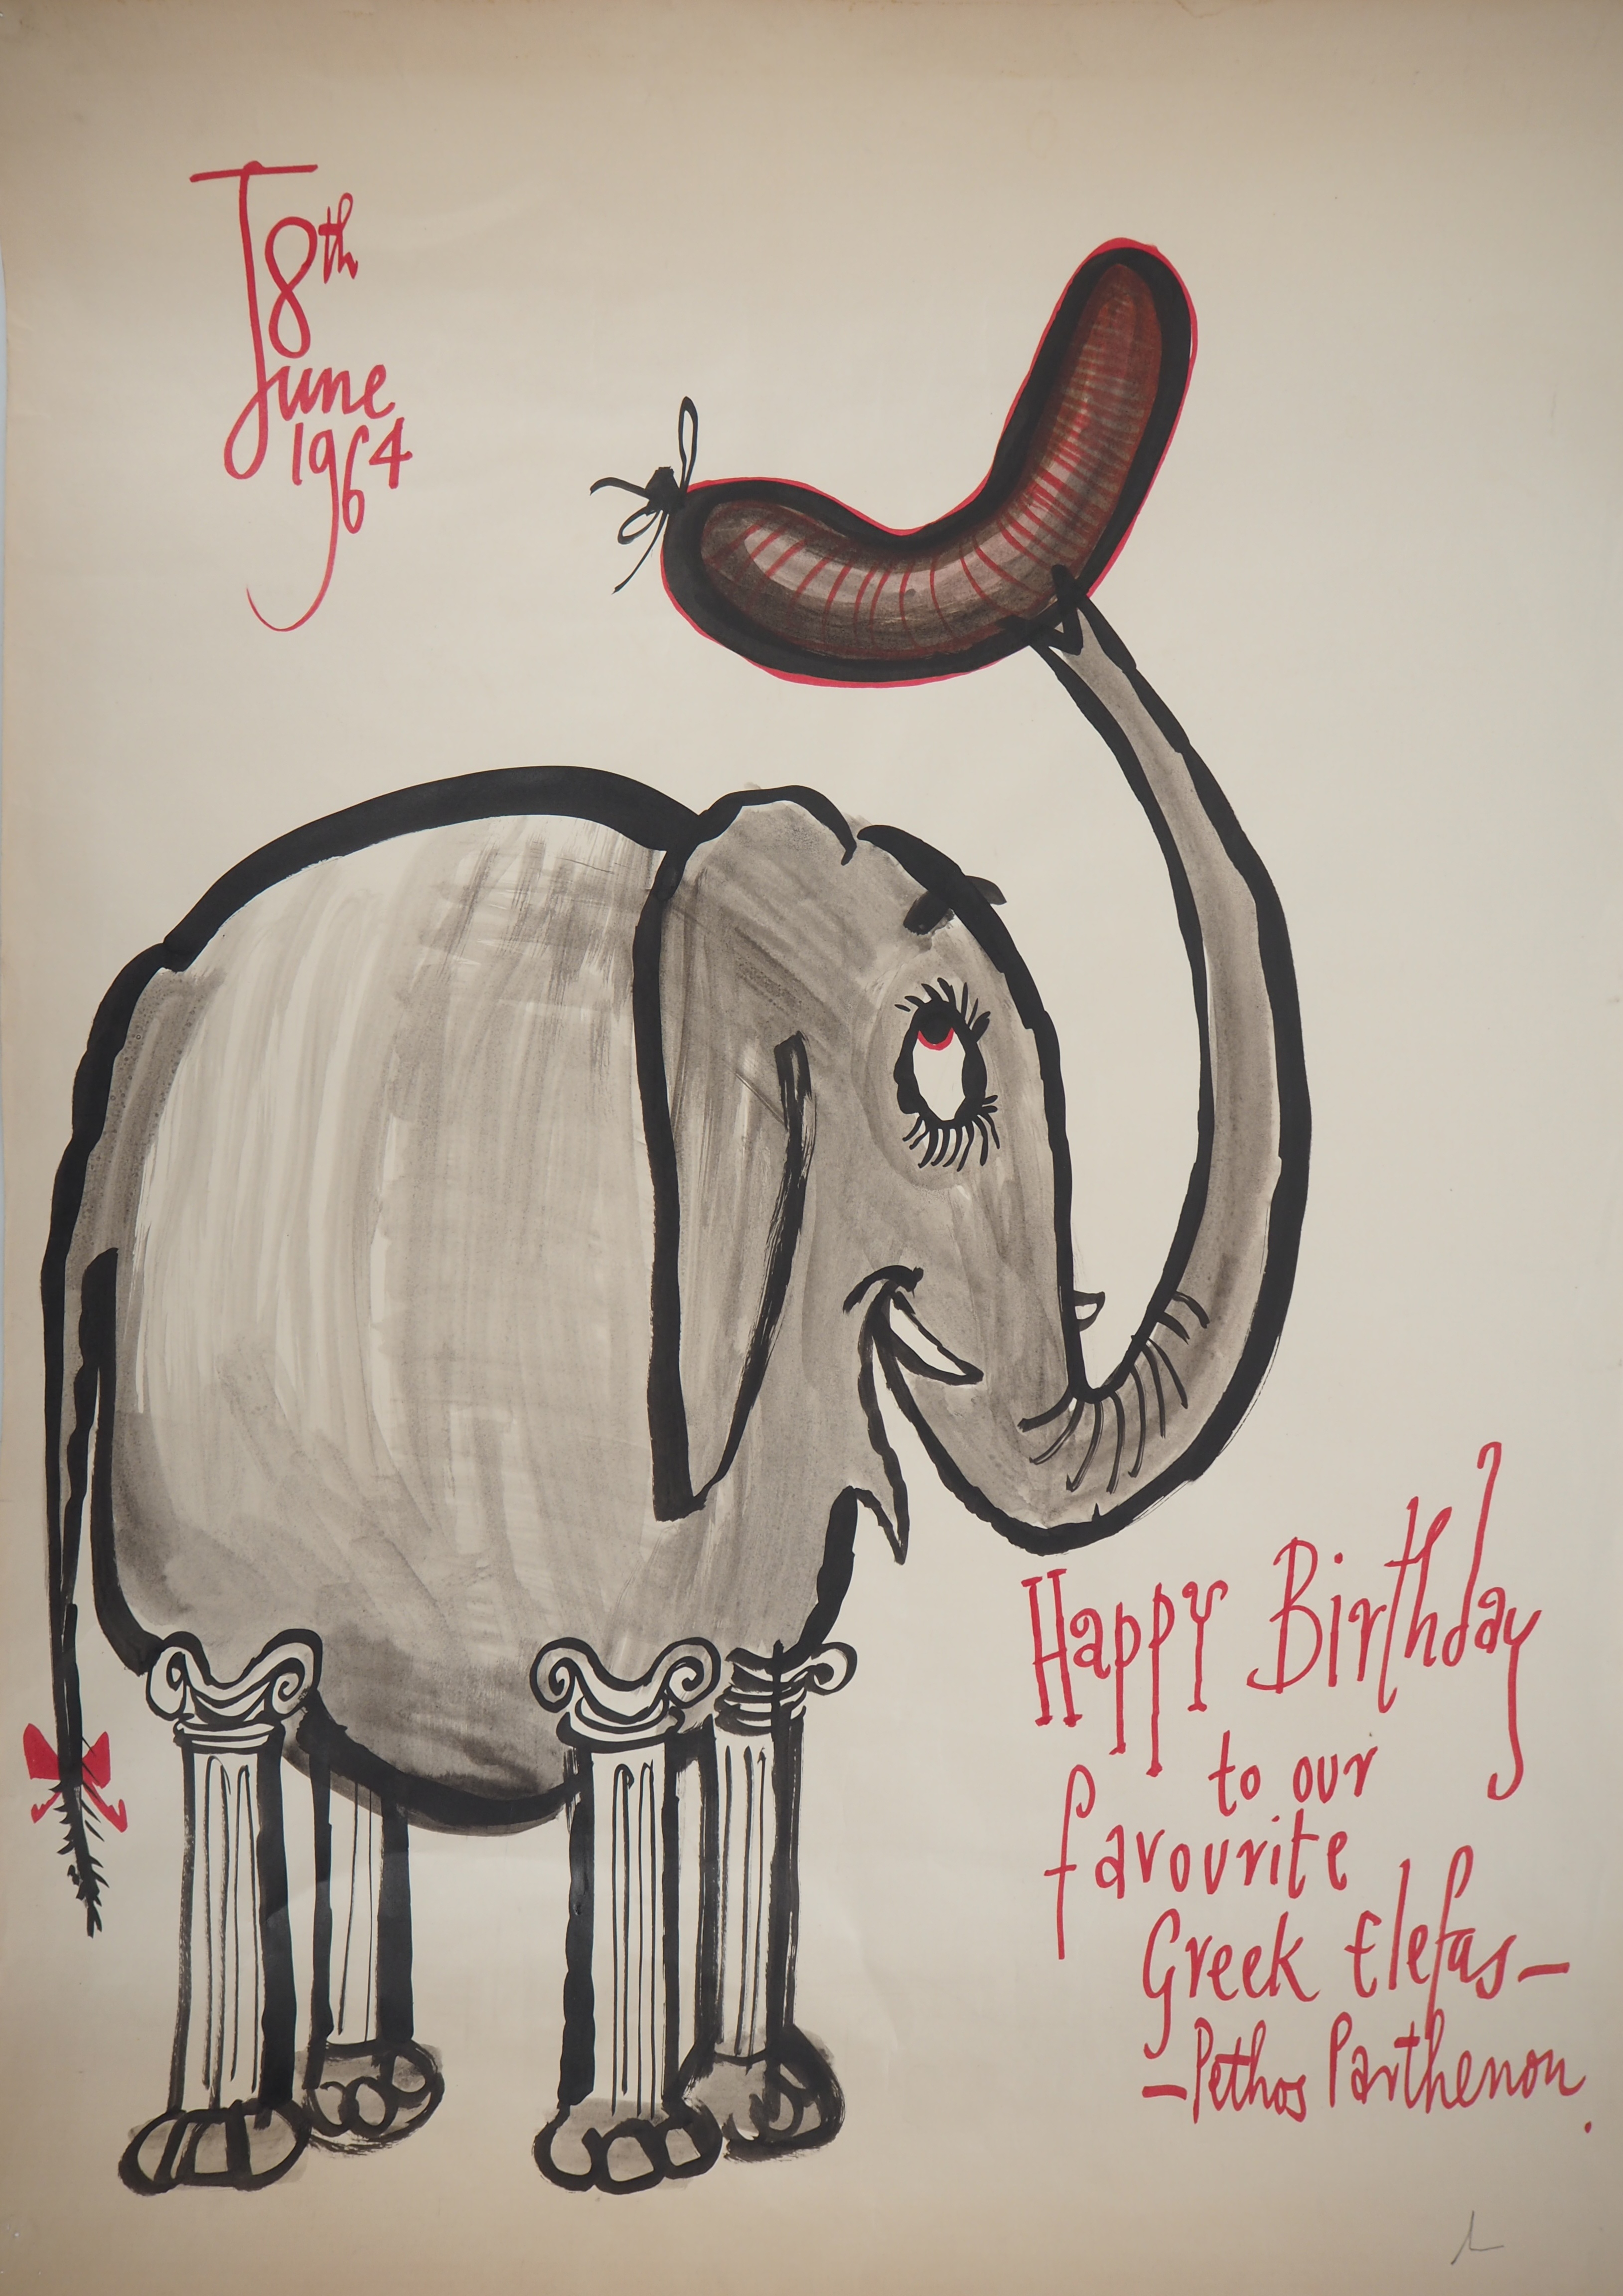 18th
June
1964
Happy Birthday
to our
favourite
Greek Elefas —
— Pethos Parthenon.